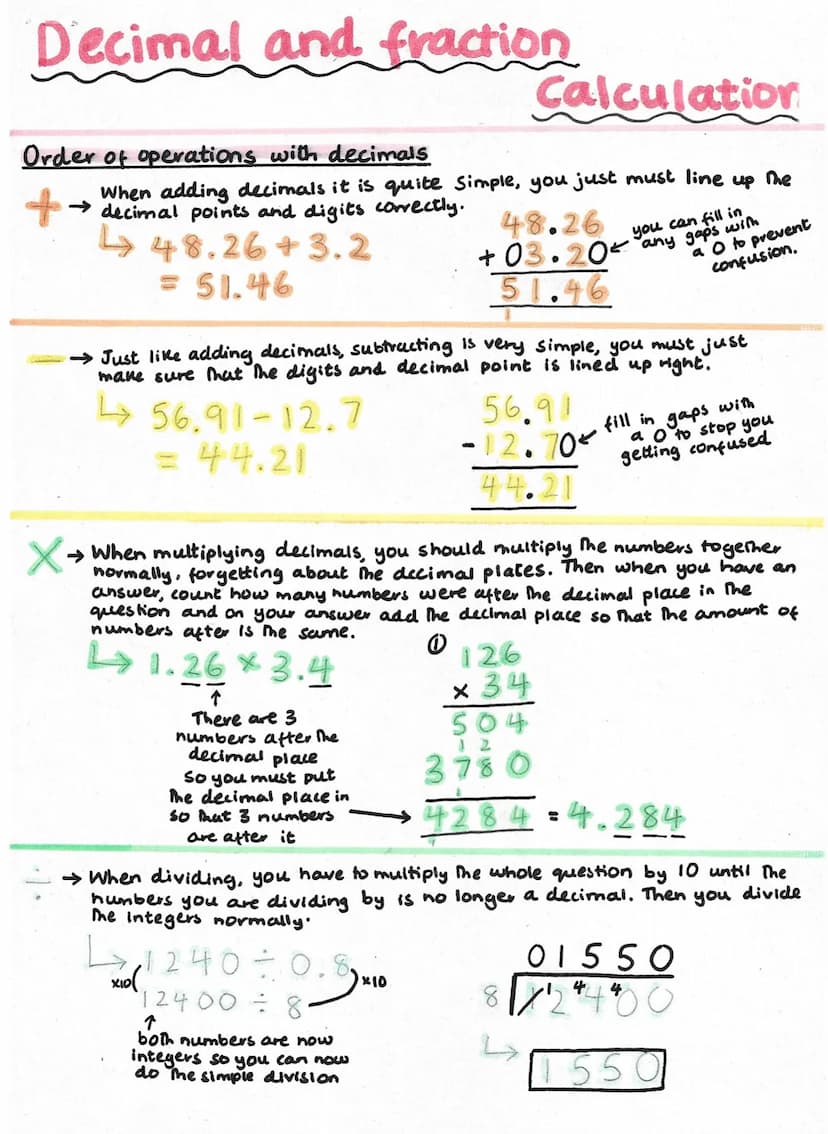 Decimal and fraction
Calculation
Order of operations with decimals
+ → When adding decimals it is quite simple, you just must line up the
decimal points and digits correctly.
↳ 48.26 + 3.2
= 51.46
48.26
+ 03.20 ← you can fill in
any gaps with
a 0 to prevent
confusion.
51.46
1
− → Just like adding decimals, subtracting is very simple, you must just
make sure that the digits and decimal point is lined up right.
↳ 56.91 − 12.7
= 44.21
56.91
- 12.70 ← fill in gaps with
a 0 to stop you
getting confused
44.21
× → When multiplying decimals, you should multiply the numbers together
normally, forgetting about the decimal plates. Then when you have an
answer, count how many numbers were after the decimal place in the
question and on your answer add the decimal place so that the amount of
numbers after is the same.
↳ 1.26 × 3.4
↑
There are 3
numbers after the
decimal place
so you must put
the decimal place in
so that 3 numbers →
are after it
① 126
× 34
504
1 2
3780
1
4284 = 4.284
1
÷ → When dividing, you have to multiply the whole question by 10 until the
numbers you are dividing by is no longer a decimal. Then you divide
the integers normally.
↳ 1240 ÷ 0.8
x10 x10
12400 ÷ 8
↑
both numbers are now
integers so you can now
do the simple division
01550
8 1 ¹2 ⁴4 ⁴0 0
↳ 1550